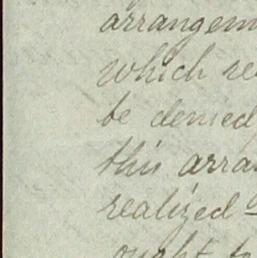 arrangem
which re
be denied
this arra
realized
ought to